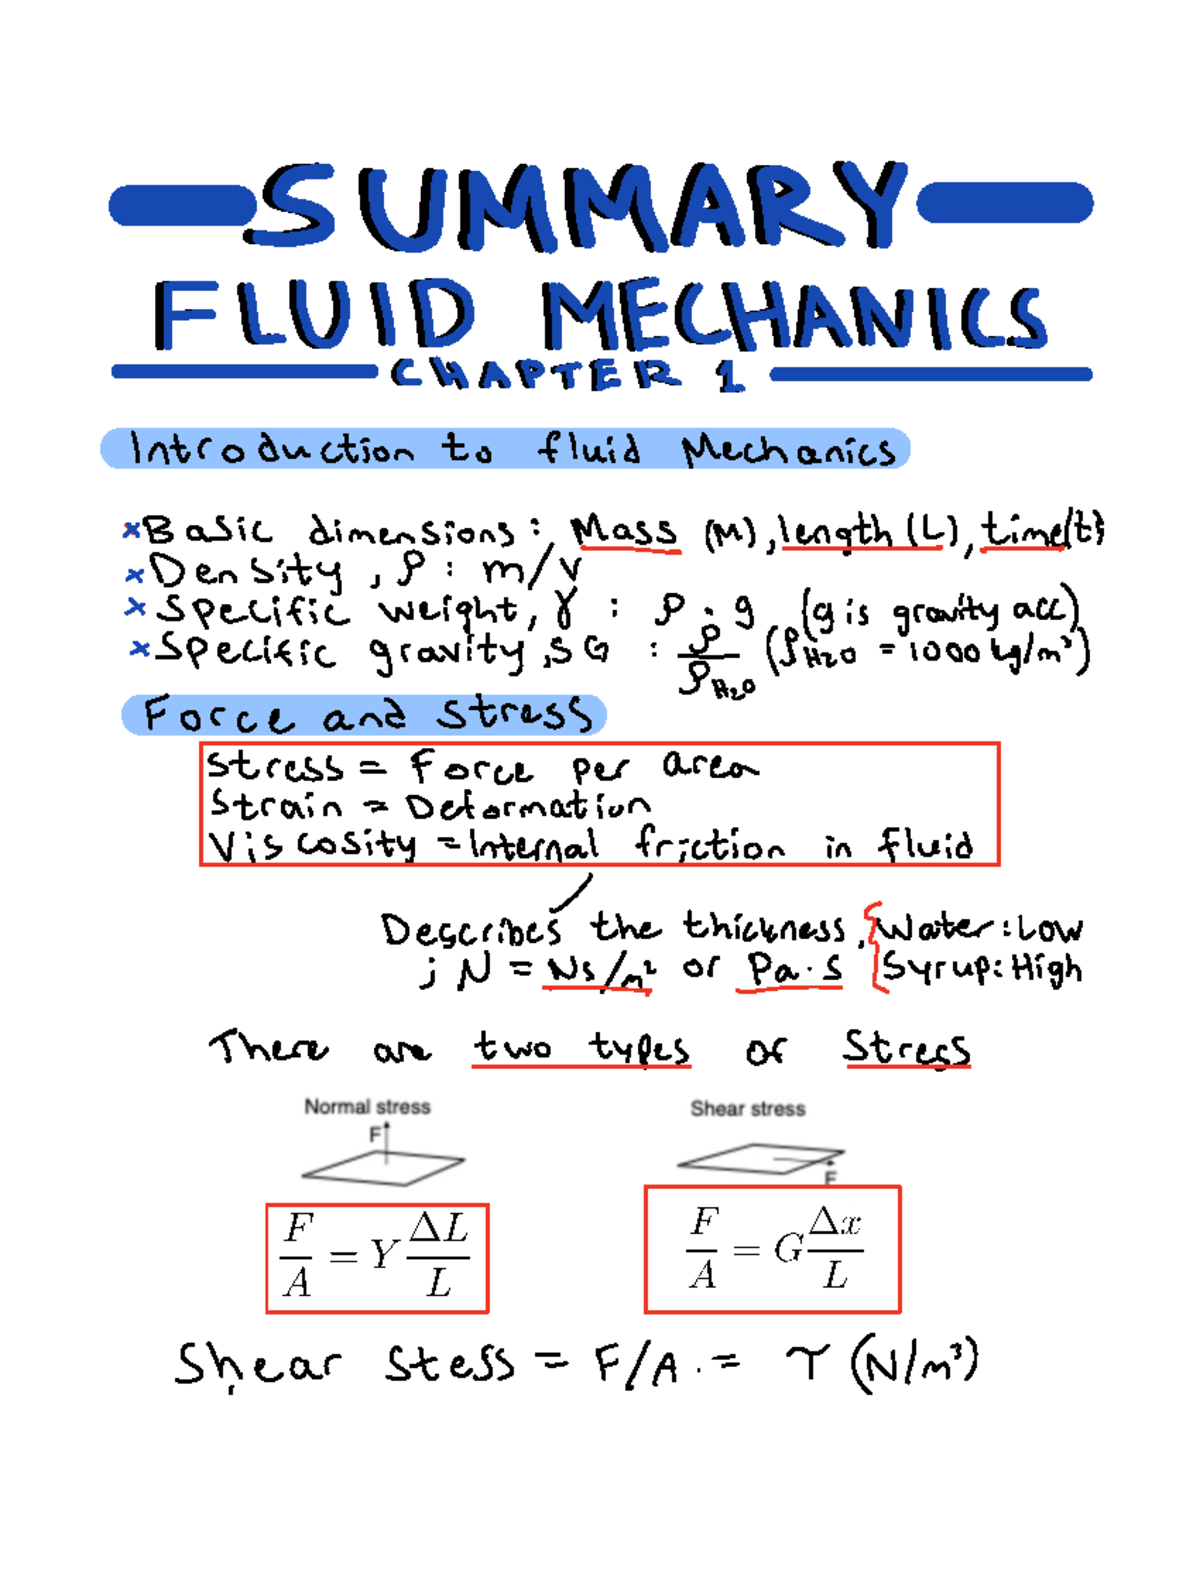 SUMMARY
FLUID MECHANICS
CHAPTER 1
Introduction to fluid Mechanics
×Basic dimensions: Mass (M), length (L), time(t)
×Density, ρ : m/v
×Specific weight, γ : ρ · g (g is gravity acc)
×Specific gravity, SG : ρ/ρH2O (ρH2O = 1000 kg/m³)
Force and stress
stress = Force per area
Strain = Deformation
Viscosity = Internal friction in fluid
Describes the thickness, {Water: Low
; N = Ns/m² or Pa·s {Syrup: High
There are two types of Stress
Normal stress
F
Shear stress
F
F/A = Y ΔL/L
F/A = G Δx/L
Shear stess = F/A = τ (N/m³)